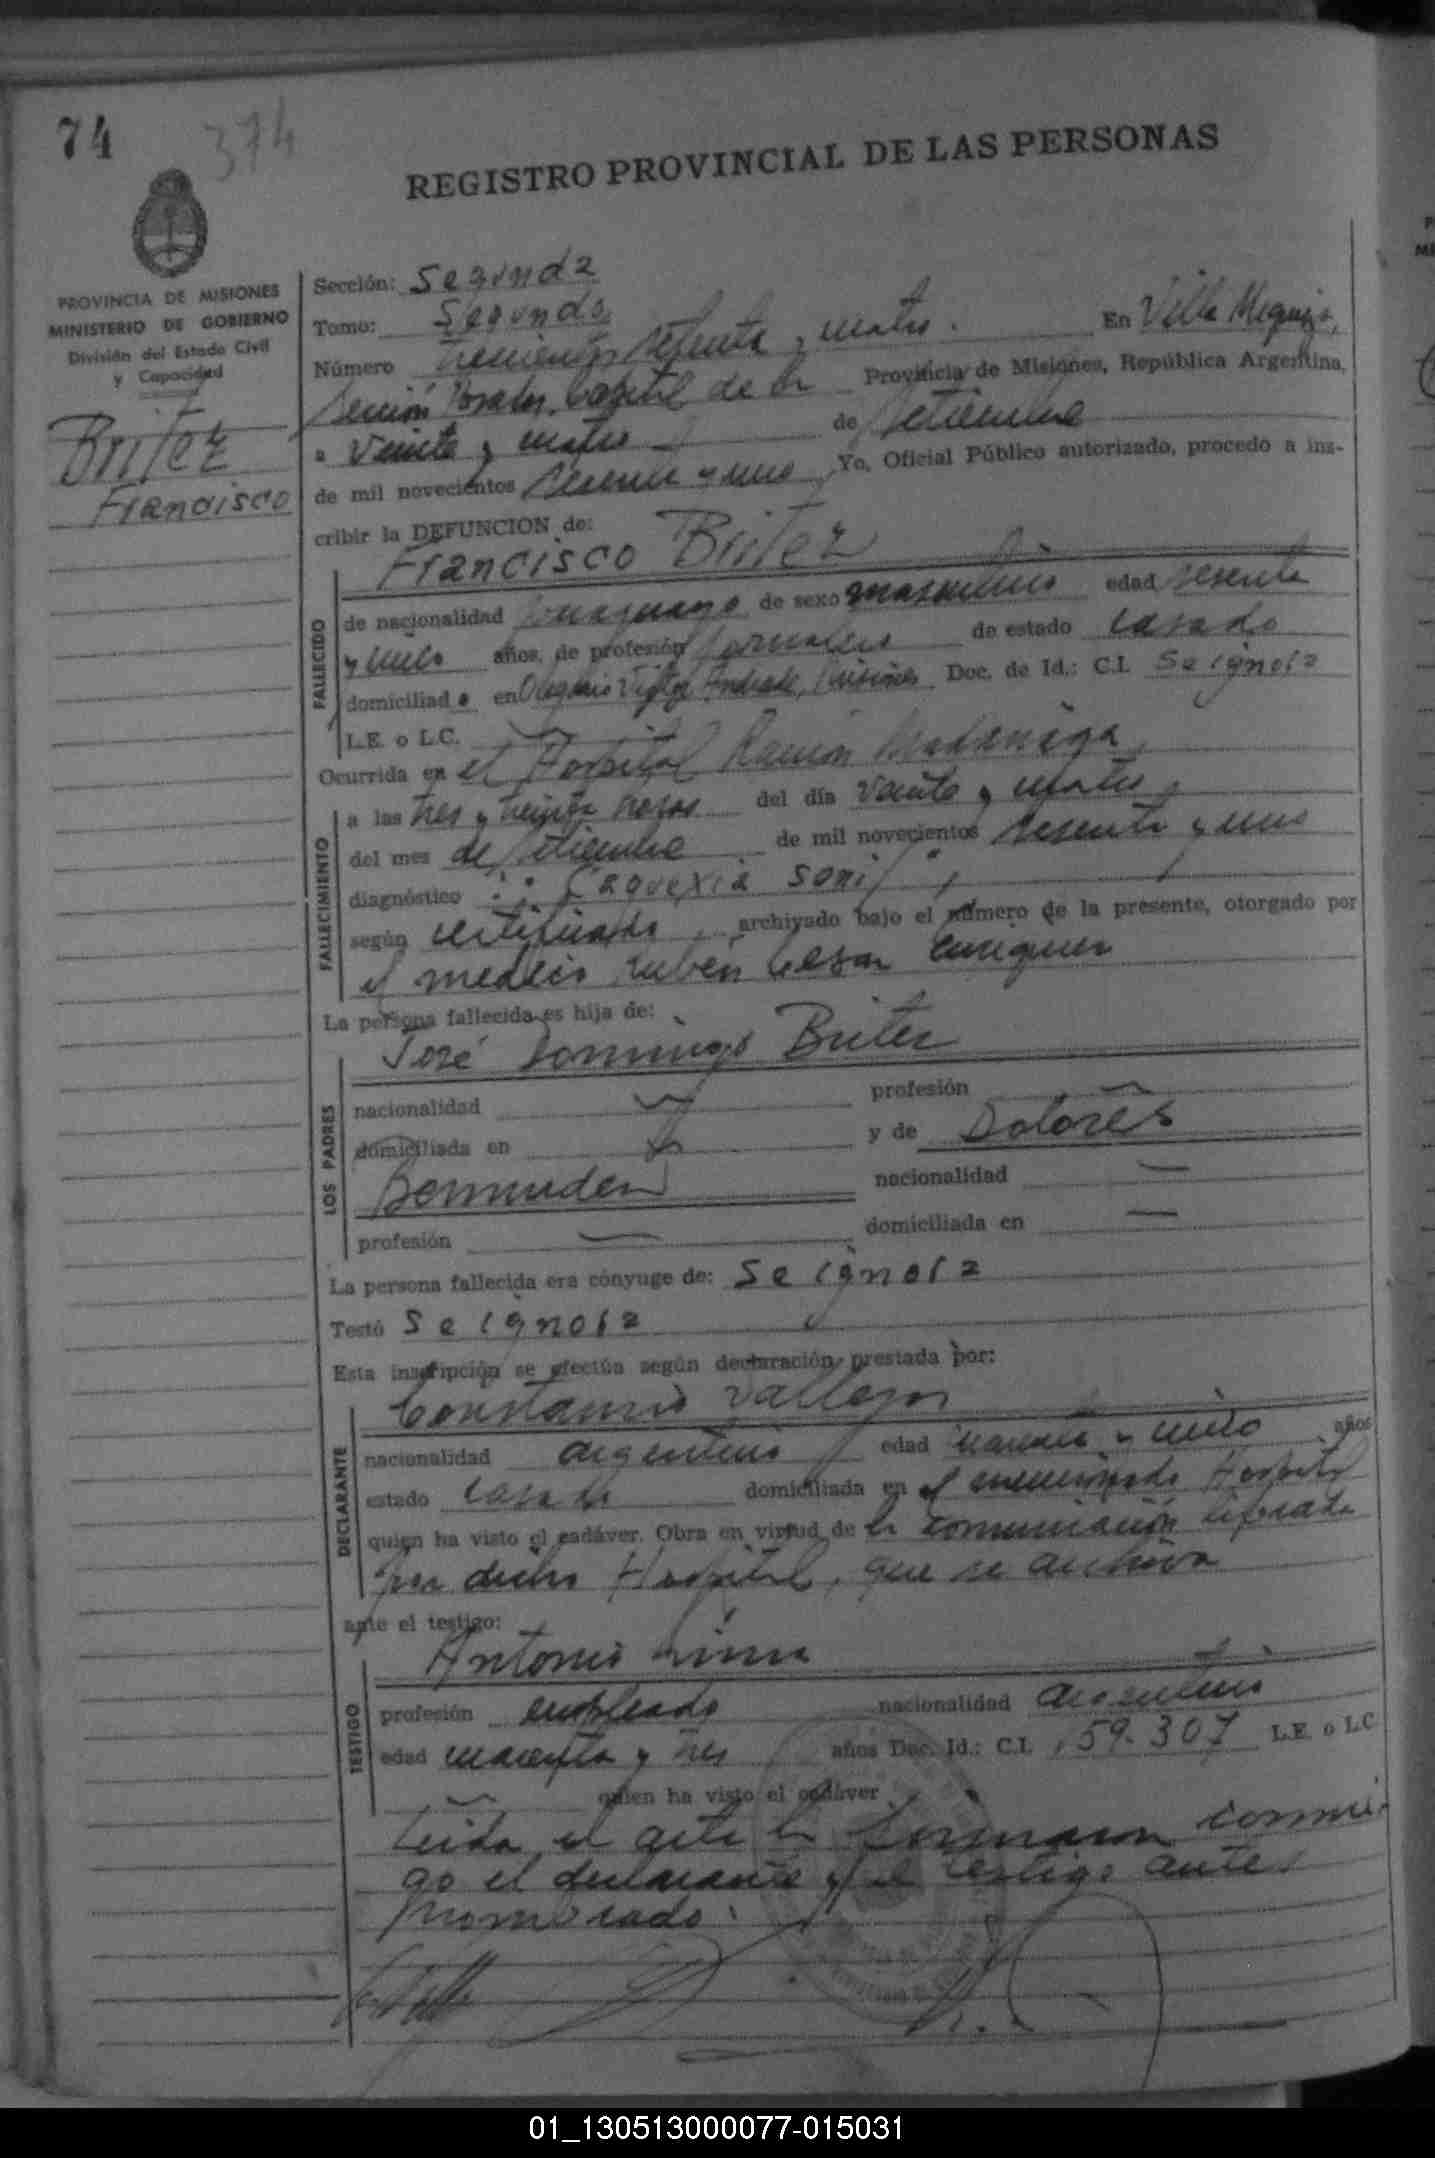 74 374
REGISTRO PROVINCIAL DE LAS PERSONAS
PROVINCIA DE MISIONES
MINISTERIO DE GOBIERNO
División del Estado Civil
y Capacidad
Britez
Francisco
Sección: Segunda
Tomo: Segundo
Número trescientos setenta y cuatro. En Villa
Sección Posadas, Capital de la Provincia de Misiones, República Argentina,
a veinte y cuatro de setiembre
de mil novecientos sesenta y uno Yo, Oficial Público autorizado, procedo a ins-
cribir la DEFUNCION de:
Francisco Britez
FALLECIDO
de nacionalidad de sexo masculino edad sesenta
y años, de profesión jornalero de estado casado
domiciliado en Olegario Víctor Andrade, Misiones Doc. de Id.: C.I. Se ignora
L.E. o L.C.
Ocurrida en el Hospital Ramón Madariaga,
FALLECIMIENTO
a las tres y treinta horas del día veinte y cuatro
del mes de setiembre de mil novecientos sesenta y uno
diagnóstico Caquexia
según certificado archivado bajo el número de la presente, otorgado por
el médico Rubén Cesar Enriquez
La persona fallecida es hija de:
José Domingo Britez
LOS PADRES
nacionalidad profesión
domiciliada en y de Dolores
Bermudez nacionalidad —
profesión — domiciliada en —
La persona fallecida era cónyuge de: Se ignora
Testó Se ignora
Esta inscripción se efectúa según declaración prestada por:
Constancio Vallejos
DECLARANTE
nacionalidad argentino edad años
estado casado domiciliada en el mencionado Hospital
quien ha visto el cadáver. Obra en virtud de la comunicación
por dicho Hospital, que se archiva
ante el testigo:
Antonio
TESTIGO
profesión empleado nacionalidad argentino
edad cuarenta y tres años Doc. Id.: C.I. 59.307 L.E. o L.C
quien ha visto el cadáver
Leida el acta la firmaron conmi-
go el declarante y el testigo antes
01_130513000077-015031